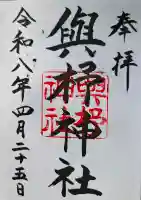 奉拝
與杼神社
令和八年四月二十五日